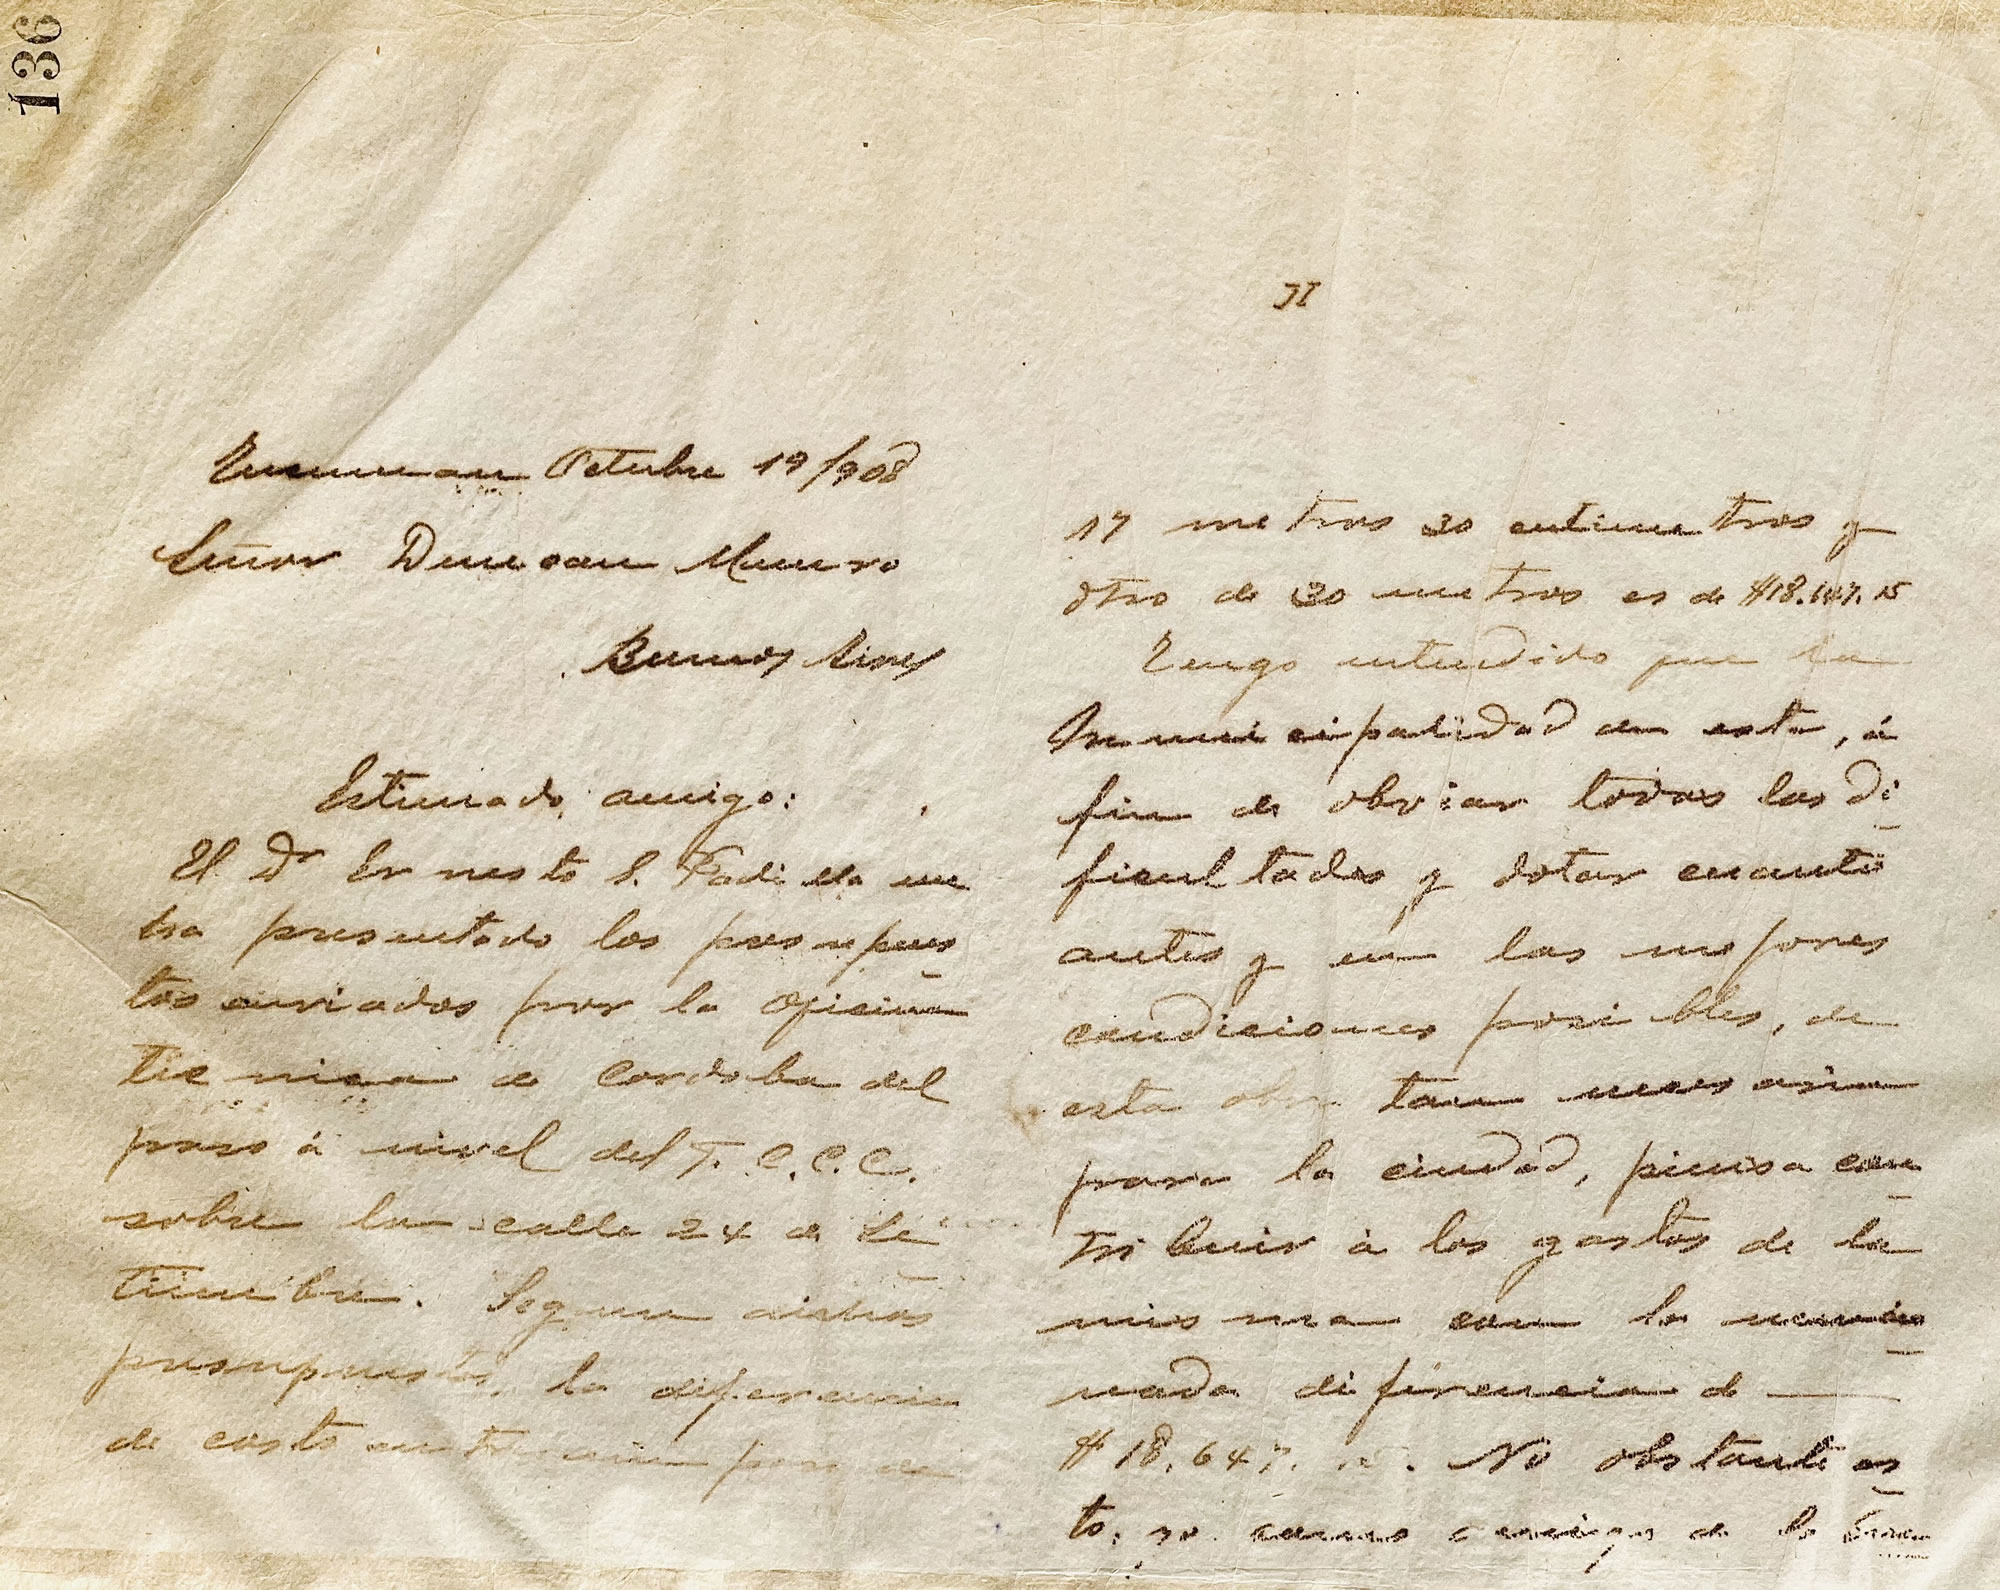 136
Tucuman Octubre 19/908
Señor Duncan Munro
Buenos Aires
Estimado amigo:
El Dr Ernesto E. Padilla me
ha presentado los presupues
tos enviados por la Oficina
Técnica de Cordoba del
paso á nivel del F. C. C. C.
sobre la calle 24 de Se
tiembre. Segun dichos
presupuestos, la diferencia
de costo entre un paso de
II
17 metros 30 centimetros y
otro de 30 metros es de $18.647.15
Tengo entendido que la
Municipalidad de esta, á
fin de obviar todas las di
ficultades y dotar cuanto
antes y en las mejores
condiciones posibles, de
esta obra tan necesaria
para la ciudad, piensa con
tribuir á los gastos de la
misma con la mencio
nada diferencia de —
$ 18.647. 15. No obstante es
to, yo como amigo de la